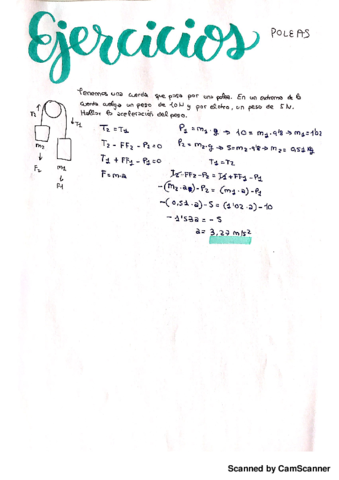 Ejercicios POLEAS
Tenemos una cuerda que pasa por una polea. En un extremo de la
cuerda cuelga un peso de 10N y por el otro, un peso de 5N.
Hallar la aceleración del peso.
T₂
T₁
m₂
m₁
F₂
F₁
T₂ = T₁
T₂ - FF₂ - P₂ = 0
T₁ + FF₁ - P₁ = 0
F = m·a
P₁ = m₁·g → 10 = m₁·9'8 → m₁ = 1'02
P₂ = m₂·g → 5 = m₂·9'8 → m₂ = 0,51 kg
T₁ = T₂
T₂ - FF₂ - P₂ = T₁ + FF₁ - P₁
-(m₂·a) - P₂ = (m₁·a) - P₁
-(0,51·a) - 5 = (1'02·a) - 10
-1'53a = -5
a = 3,27 m/s²
Scanned by CamScanner